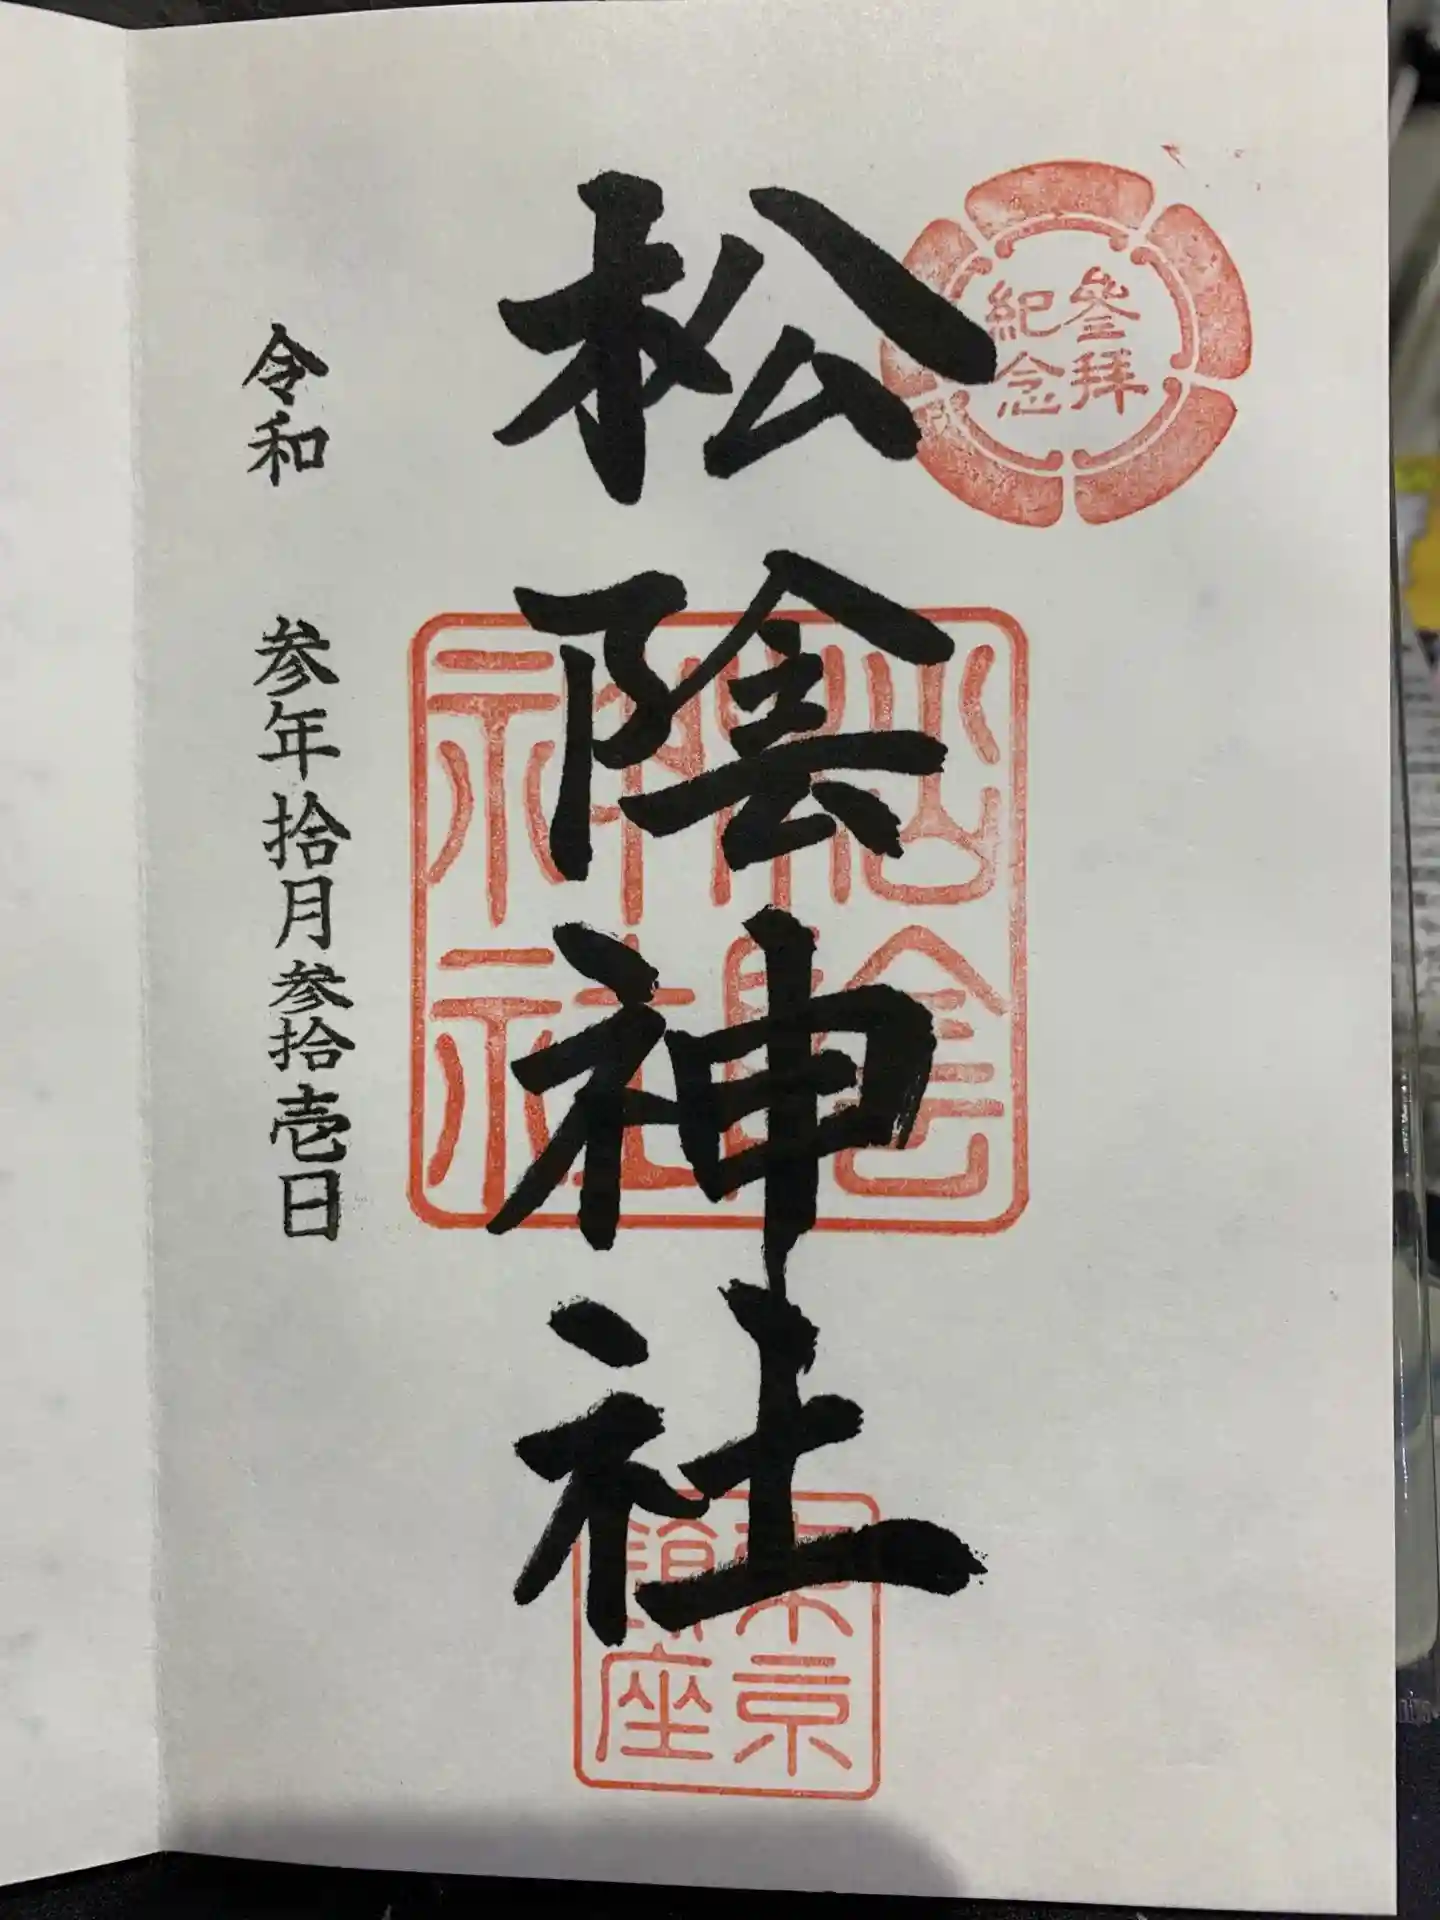 參拜
紀念
松陰神社
松陰
神社
東京
鎮座
令和 参年拾月参拾壱日